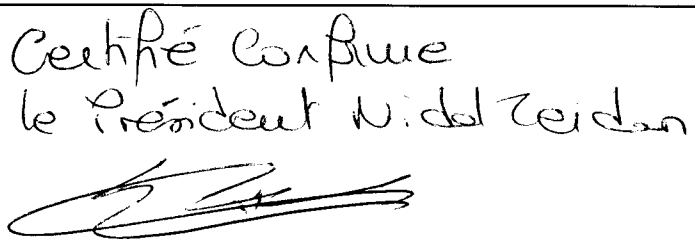 Certifié Conforme
le Président Nidal Zeidan